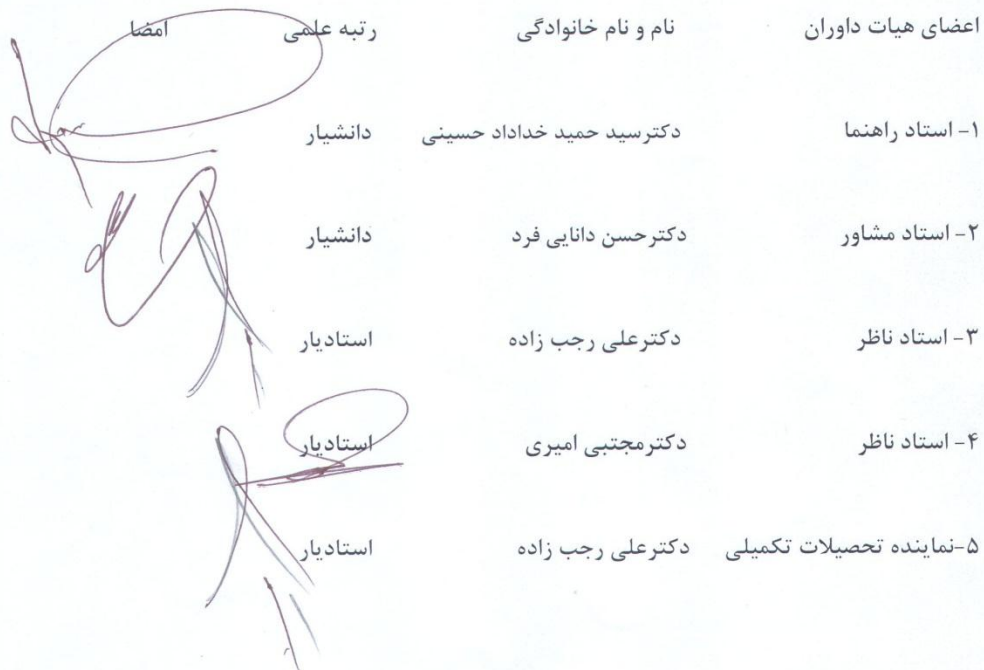 اعضای هیات داوران نام و نام خانوادگی رتبه علمی امضا
۱- استاد راهنما دکترسید حمید خداداد حسینی دانشیار
۲- استاد مشاور دکترحسن دانایی فرد دانشیار
۳- استاد ناظر دکترعلی رجب زاده استادیار
۴- استاد ناظر دکترمجتبی امیری استادیار
۵-نماینده تحصیلات تکمیلی دکترعلی رجب زاده استادیار